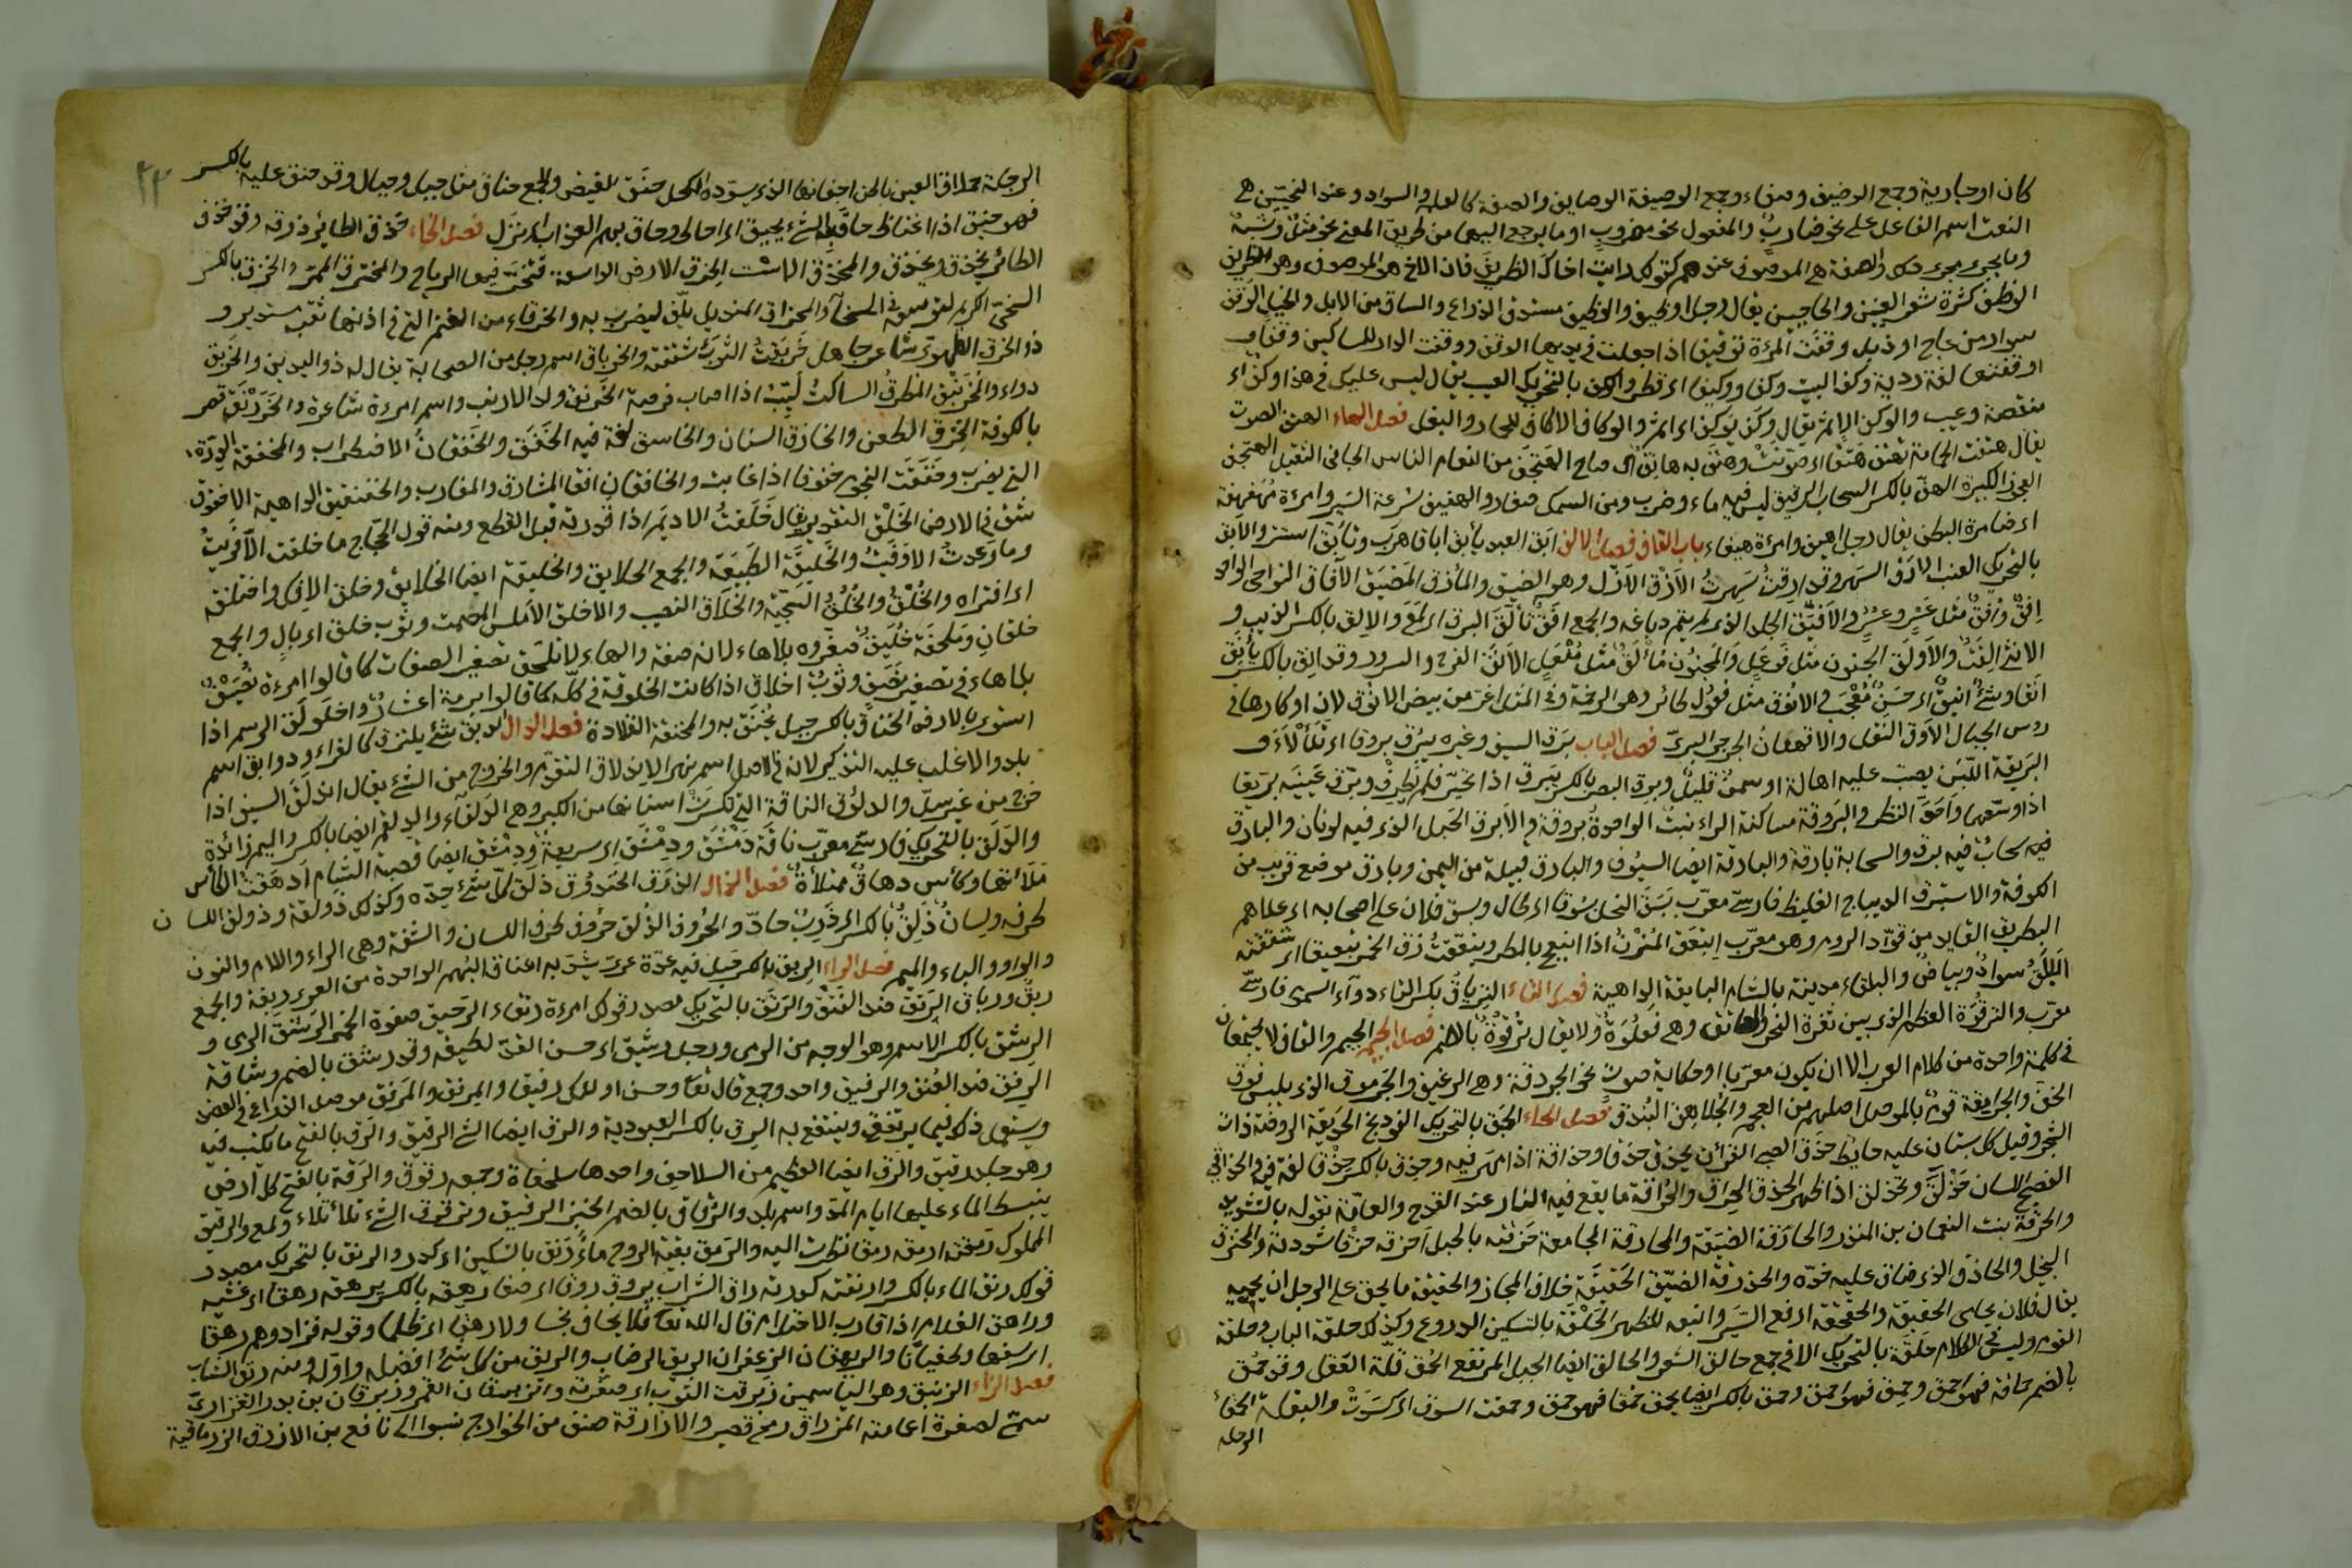 كان او جارية وجمع الوصيف وصفاء وجمع الوصيفة الوصايف والصفة كالعلم والسواد وعند النحيين هي
النعت اسم الفاعل على نحو ضارب والمفعول نحو مضروب او ما يرجع اليهما من طريق المعنى نحو مثل وشبه
وما يجرى مجرى ذلك والصفة هي الموصوف عندهم كقولك رايت اخاك الظريف فان الاخ هو الموصوف وهو الظريف
الوطف كثرة شعر العينين والحاجبين يقال رجل اوطف والوظيف مستدق الذراع والساق من الابل والخيل الوقف
سوار من عاج او ذبل وقفت المرءة توقيفا اذا جعلت في يديها الوقف ووقفت الدار للمساكين وقفا و
اوقفتها لغة ردية وكف البيت وكفا ووكيفا اى قطر والوكف بالتحريك العيب يقال ليس عليك في هذا وكف اى
منقصة وعيب والوكف الاثم يقال وكف يوكف اى اثم والوكاف الاكاف للحمار والبغل فصل الهاء الهتف الصوت
يقال هتفت الحمامة تهتف هتفا اى صوتت وهتف به هاتف اى صاح الهجف من النعام الناس الجافى الثقيل الهجف
الهف بالكسر السحاب الرقيق ليس فيه ماء وضرب ومن السمك صغار والهفيف سرعة السير وامرءة مهفهفة
اى ضامرة البطن يقال رجل اهيف وامرءة هيفاء باب القاف فصل الالف ابق العبد يأبق اباقا هرب وتأبق استتر والابق
بالتحريك القنب الارق السهر وقد ارقت سهرت الازق الازل وهو الضيق والمأزق المضيق الآفاق النواحى الواحد
افق وافق مثل عسر وعسر والافيق الجلد الذى لم يتم دباغه والجمع افق تألق البرق اى لمع والالق بالكسر الذيب و
الانثى القة والاولق الجنون مثل فوعل والمجنون مألق مثل مفعل الانق الفرح والسرور وقد انق بالكسر يأنق
انقا وشئ انيق اى حسن معجب والانوق مثل فعول طائر وهو الرخمة وفى المثل اعز من بيض الانوق لان اوكارها فى
روس الجبال الاوق الثقل فصل الباء برق السيف وغيره يبرق بروقا اى تلألأ و
البريقة اللبن يصب عليه اهالة او سمن قليل وبرق البصر بالكسر يبرق اذا تحير فلم يطرف وبرق عينيه تبريقا
اذا وسعهما واحد النظر والبروقة ساكنة الراء نبت الواحدة بروقة والابرق الحبل الذى فيه لونان والبارق
سحاب فيه برق والسحابة بارقة والبارقة ايضا السيوف والبارق قبيلة من اليمن وبارق موضع قريب من
الكوفة والاستبرق الديباج الغليظ فارسى معرب بسق النخل بسوقا اى طال وبسق فلان على اصحابه اى علاهم
البطريق القايد من قواد الروم وهو معرب انبعق المزن اذا انبعج بالمطر وبعقت زق الخمر تبعيقا اى شققته
البلق سواد وبياض والبلقاء مدينة بالشام البايقة الداهية فصل التاء الترياق بكسر التاء دواء السموم فارسى
معرب والترقوة العظم الذى بين ثغرة النحر والعاتق وهى فعلوة ولا يقال ترقوة بالضم فصل الجيم الجيم والقاف لا يجتمعان
فى كلمة واحدة من كلام العرب الا ان يكون معربا او حكاية صوت نحو الجردقة وهى الرغيف والجرموق الذى يلبس فوق
الخف والجرامقة قوم بالموصل اصلهم من العجم والجلاهق البندق فصل الحاء الحبق بالتحريك الفوذنج الحديقة الروضة ذات
الشجر وقيل كل بستان عليه حايط حذق الصبى القرآن يحذق حذقا وحذاقة اذا مهر فيه وحذق بالكسر حذقا لغة فيه والحذاقى
الفصيح اللسان حذلق وتحذلق اذا اظهر الحذق الحراق والحراقة ما يقع فيه النار عند القدح والعامة تقوله بالتشديد
والحرقة بنت النعمان بن المنذر والحازقة الجماعة حزقته بالحبل احزقه حزقا شددته والحزق
البخيل والحازق الذى ضاق عليه خفه والحزقة الضيق الحقيقة خلاف المجاز والحقيقة ما يحق على الرجل ان يحميه
يقال فلان يحامى الحقيقة والحقحقة ارفع السير واتعبه للظهر الحلقة بالتسكين الدروع وكذلك حلقة الباب وحلقة
القوم وليس فى الكلام حلقة بالتحريك الا فى جمع حالق الشعر والحالق ايضا الجبل المرتفع الحمق قلة العقل وقد حمق
بالضم حماقة فهو احمق وحمق بالكسر ايضا يحمق حمقا فهو حمق وحمقت السوق اى كسدت والبقلة الحمقاء
الرجلة
الرجلة حملاق العين باطن اجفانها الذى يسوده الكحل حنق الغيظ والجمع حناق مثل جبل وجبال وقد حنق عليه بالكسر
فهو حنق اذا اغتاظ حاق به الشئ يحيق اى احاط وحاق بهم العذاب اى نزل فصل الخاء خذق الطائر ذرقه وقد خذق
الطائر يخذق ويخذق والمخذقة الاست الخرق الارض الواسعة تنخرق فيها الرياح والمخترق الممر والخرق بالكسر
السخى الكريم والمخراق المنديل يلف ليضرب به والخرقاء من الغنم التى فى اذنها ثقب مستدير و
ذو الخرق الطهوى شاعر جاهلى خربقت الثوب شققته والخرباق اسم رجل من الصحابة يقال له ذو اليدين والخربق
دواء والمخرنبق المطرق الساكت ليثب اذا اصاب فرصة الخرنق ولد الارنب واسم امرءة شاعرة والخورنق قصر
بالكوفة الخزق الطعن والخازق السنان والخاسق لغة فيه الخفق والخفقان الاضطراب والمخفقة الدرة
التى يضرب وخفقت النجوم خفوقا اذا غابت والخافقان افقا المشارق والمغارب والخنفقيق الداهية الاخقوق
شق فى الارض الخلق التقدير يقال خلقت الاديم اذا قدرته قبل القطع ومنه قول الحجاج ما خلقت الا فريت
وما وعدت الا وفيت والخليقة الطبيعة والجمع الخلايق والخليقة ايضا الخلائق وخلق الافك واختلقه
اى افتراه والخلق والخلق السجية والخلاق النصيب والاخلق الاملس المصمت وثوب خلق اى بال والجمع
خلقان وملحفة خليق صغروه بلا هاء لانه صفة والهاء لا تلحق تصغير الصفات كما قالوا امرءة نصيف
بلا هاء فى تصغير نصف وثوب اخلاق اذا كانت الخلوقة فى كله كما قالوا برمة اعشار واخلولق الرسم اذا
استوى بالارض الخناق بالكسر حبل يخنق به والمخنقة القلادة فصل الدال الدبق شئ يلتزق كالغراء ودوابق اسم
بلد والاغلب عليه التذكير لانه فى الاصل اسم نهر الاندلاق التقدم والخروج من الشئ يقال اندلق السيف اذا
خرج من غير سل والدلوق الناقة التى تكسرت اسنانها من الكبر وهى الدلقاء والدلقم ايضا بالكسر والميم زائدة
والدلق بالتحريك فارسى معرب ناقة دمشق ودمشق اى سريعة ودمشق ايضا قصبة الشام ادهقت الكأس
ملأتها وكأس دهاق ممتلأة فصل الذال الذرق الحندقوق ذلق كل شئ حده وكذلك ذولقه وذولق اللسان
طرفه ولسان ذلق بالكسر اى ذرب حاد والحروف الذلق حروف طرف اللسان والشفة وهى الراء واللام والنون
والواو والباء والميم فصل الراء الربق بالكسر حبل فيه عدة عرى يشد به اعناق البهم الواحدة من العرى ربقة والجمع
ربق ورباق الرتق ضد الفتق والرتق بالتحريك مصدر قولك امرءة رتقاء الرحيق صفوة الخمر الرشق الرمى و
الرشق بالكسر الاسم وهو الوجه من الرمى ورجل رشيق اى حسن القد لطيفه وقد رشق بالضم رشاقة
الرفق ضد العنف والرفيق واحد وجمع قال تعا وحسن اولئك رفيقا والمرفق والمرفق موصل الذراع فى العضد
ويستعمل ذلك فيما يرتفق وينتفع به الرق بالكسر العبودية والرق ايضا الشئ الرقيق والرق بالفتح ما يكتب فيه
وهو جلد رقيق والرق ايضا العظيم من السلاحف واحدها سلحفاة وجمعه رقوق والرقة بالفتح كل ارض
ينبسط الماء عليها ايام المد واسم بلد والرقاق بالضم الخبز الرقيق وترقرق الشئ تلألأ ولمع والرقيق
المملوك رمقته ارمقه رمقا نظرت اليه والرمق بقية الروح ماء رنق بالتسكين اى كدر والرنق بالتحريك مصدر
قولك رنق الماء بالكسر وارنقته كدرته راق الشراب يروق روقا اى صفا رهقه بالكسر يرهقه رهقا اى غشيه
وراهق الغلام اذا قارب الاحتلام قال الله تعا فلا يخاف بخسا ولا رهقا اى ظلما وقوله فزادوهم رهقا
اى سفها وطغيانا والريهقان الزعفران الريق الرضاب والريق من كل شئ افضله واوله ومنه ريق الشباب
فصل الزاء الزنبق وهو الياسمين زبرقت الثوب اى صفرته والزبرقان القمر وزبرقان بن بدر الفزارى
سمى لصفرة عمامته المزراق رمح قصير والازارقة صنف من الخوارج نسبوا الى نافع بن الازرق الزرمانقة